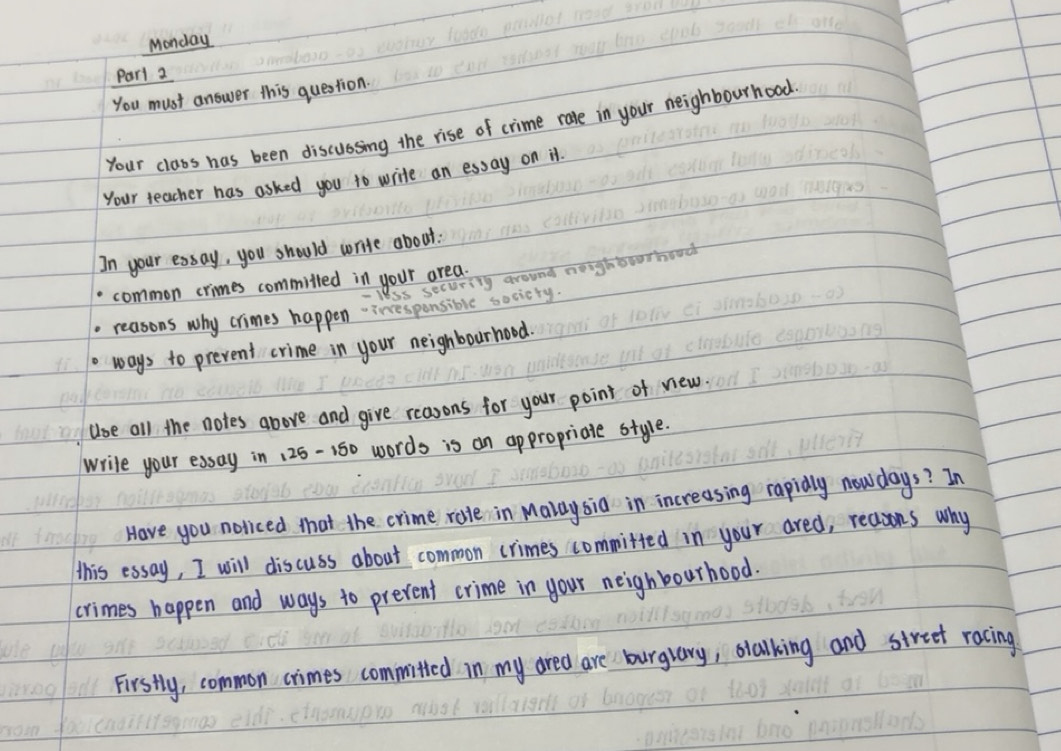 Monday
Part 2
You must answer this question.
Your class has been discussing the rise of crime rate in your neighbourhood.
Your teacher has asked you to write an essay on it.
In your essay, you should write about:
• common crimes committed in your area.
- less security around neighbourhood
• reasons why crimes happen - irresponsible society.
• ways to prevent crime in your neighbourhood.
Use all the notes above and give reasons for your point of view.
Write your essay in 125 - 150 words is an appropriate style.
Have you noticed that the crime rate in Malaysia in increasing rapidly nowdays? In
this essay, I will discuss about common crimes committed in your area, reasons why
crimes happen and ways to prevent crime in your neighbourhood.
Firstly, common crimes committed in my area are burglary, stalking and street racing